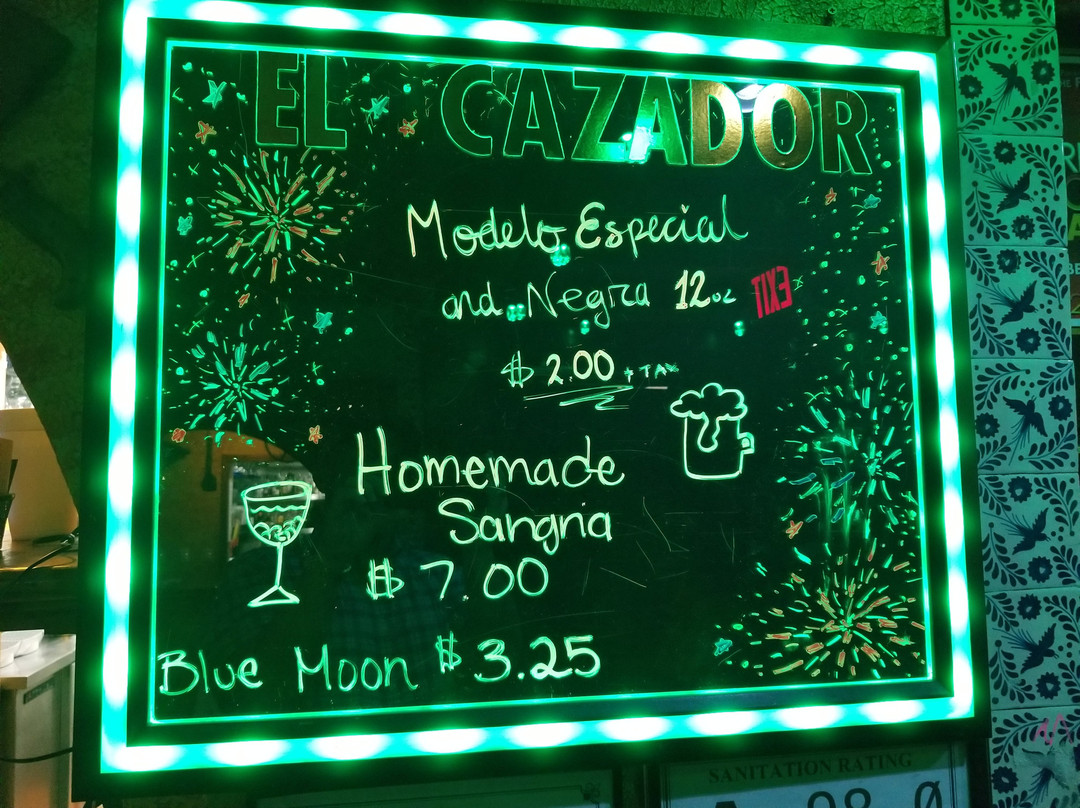 EL CAZADOR
Modelo Especial
and Negra 12oz
EXIT
$ 2.00 + TAX
Homemade
Sangria
$ 7.00
Blue Moon $ 3.25
SANITATION RATING